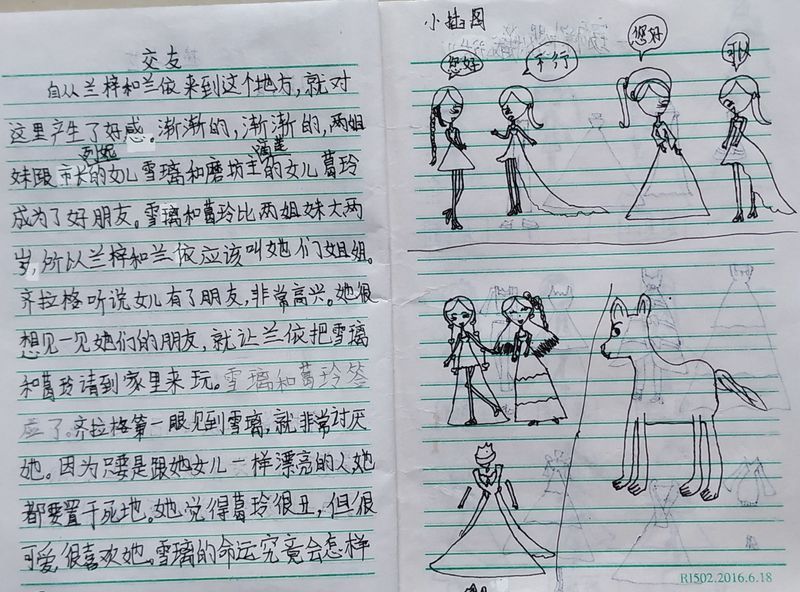 交友
自从兰梓和兰依来到这个地方,就对
这里产生了好感。渐渐的,渐渐的,两姐
妹跟市长的女儿雪璃和磨坊主的女儿葛玲
成为了好朋友。雪璃和葛玲比两姐妹大两
岁,所以兰梓和兰依应该叫她们姐姐。
齐拉格听说女儿有了朋友,非常高兴。她很
想见一见她们的朋友,就让兰依把雪璃
和葛玲请到家里来玩。雪璃和葛玲答
应了。齐拉格第一眼见到雪璃,就非常讨厌
她。因为只要是跟她女儿一样漂亮的人她
都要置于死地。她觉得葛玲很丑,但很
可爱,很喜欢她。雪璃的命运究竟会怎样
小插图
您好
不行
您好
可以
R1502.2016.6.18